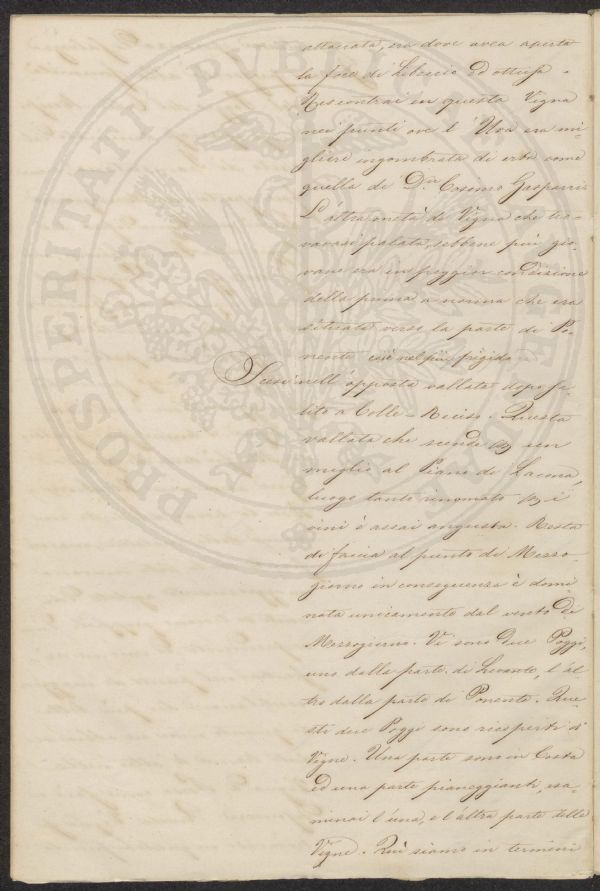 attaccata, era dove avea aperta
la foce di Libeccio ed ottusa.
Riscontrai in questa Vigna
nei punti ove l'Uva era mi-
gliore ingombrata di erba come
quella di D.n Cosimo Gasparri
L'altra metà di Vigna che tro-
vavasi palata, sebbene più gio-
vane era in peggior condizione
della prima a norma che era
situata verso la parte di Po-
nente cioè nel più frigido
Scesi nell'opposta vallata dopo sa-
lito a Colle-Reciso. Questa
vallata che scende per un
miglio al Piano di Lacona,
luogo tanto rinomato per i
vini è assai angusta. Resta
di faccia al punto di Mezzo-
giorno in conseguenza è domi
nata unicamente dal vento di
Mezzogiorno. Vi sono due Poggi,
uno dalla parte di Levante, l'al-
tro dalla parte di Ponente. Que
sti due Poggi sono ricoperti di
Vigne. Una parte sono in Costa
ed una parte pianeggianti, esa-
minai l'una, e l'altra parte delle
Vigne. Qui siamo in termini
PROSPERITATI PUBLICAE AUGENDAE